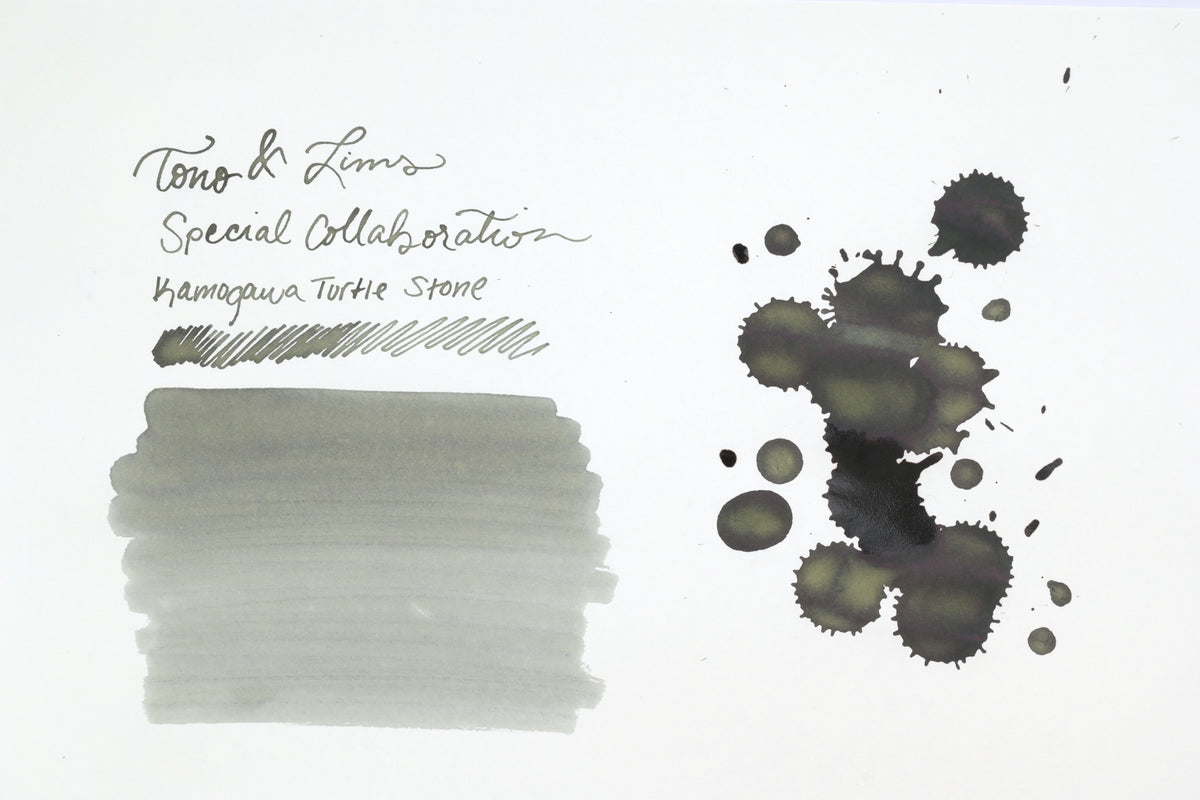 Tono & Lims
Special Collaboration
Kamogawa Turtle Stone